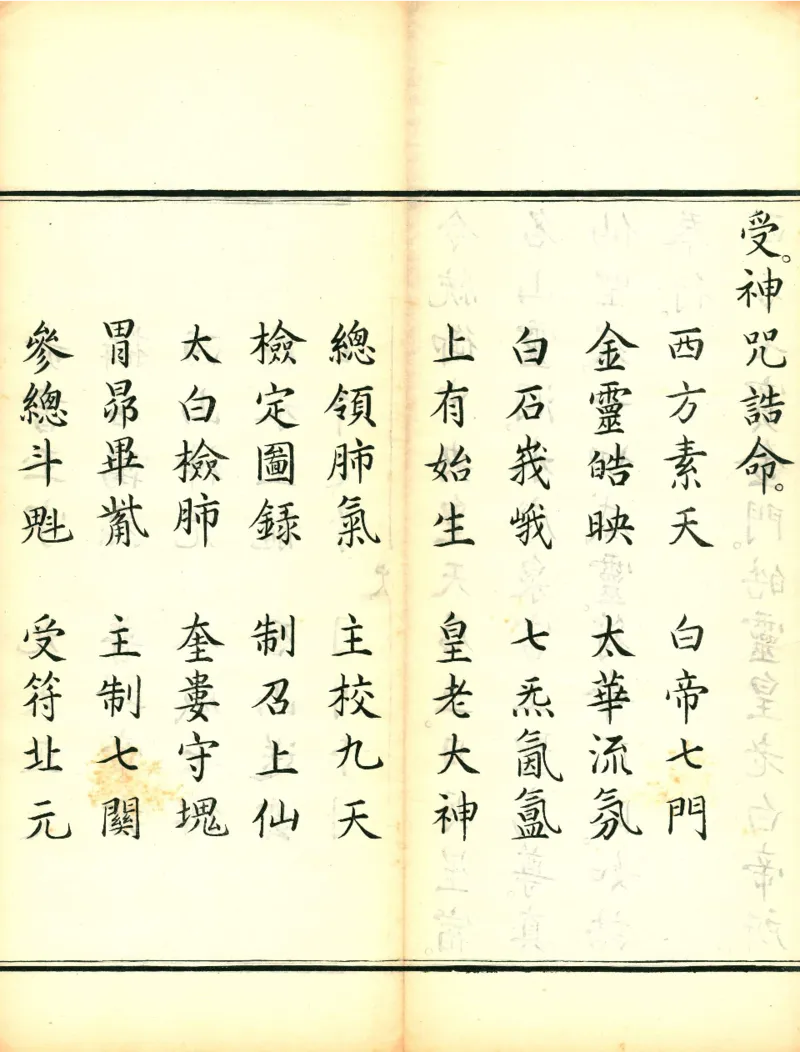 受。神咒誥命。
西方素天　白帝七門
金靈皓映　太華流氛
白石峩峨　七炁氤氳
上有始生　皇老大神
總領肺氣　主校九天
檢定圖錄　制召上仙
太白檢肺　奎婁守塊
胃昴畢觜　主制七關
參總斗魁　受符北元